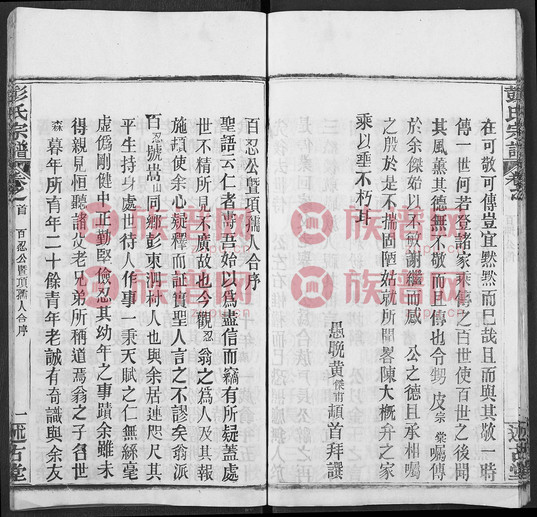 在可敬可傳豈宜默默而已哉且而與其敬一時
傳一世何若登諸家乘傳之百世使百世之後聞
其風薰其德無不敬而傳也令甥皮宗棠囑傳
於余傑始以不敏謝繼而感 公之德且承相囑
之殷於是不揣固陋姑就所聞畧陳大概弁之家
乘以垂不朽耳
愚晚黃傑甫頓首拜譔
百忍公暨項孺人合序
聖語云仁者壽吾始以為盡信而竊有所疑蓋處
世不精所見不廣故也今觀忍翁之為人及其報
施頓使余心疑釋而証實聖人言之不謬矣翁派
百忍號嵩山同鄉彭東洲村人也與余居連咫尺其
平生持身處世待人作事一秉天賦之仁無絲毫
虛僞剛健中正勤堅儉忍其幼年之事蹟余雖未
得親見恒聽諸父老兄弟所稱道焉翁之子名世
森暮年所育年二十餘青年老誠有奇識與余友
彭氏宗譜
卷之首
百忍公暨項孺人合序
一
述古堂
彭氏宗譜
述古堂
族譜网
族譜网
族譜网
族譜网